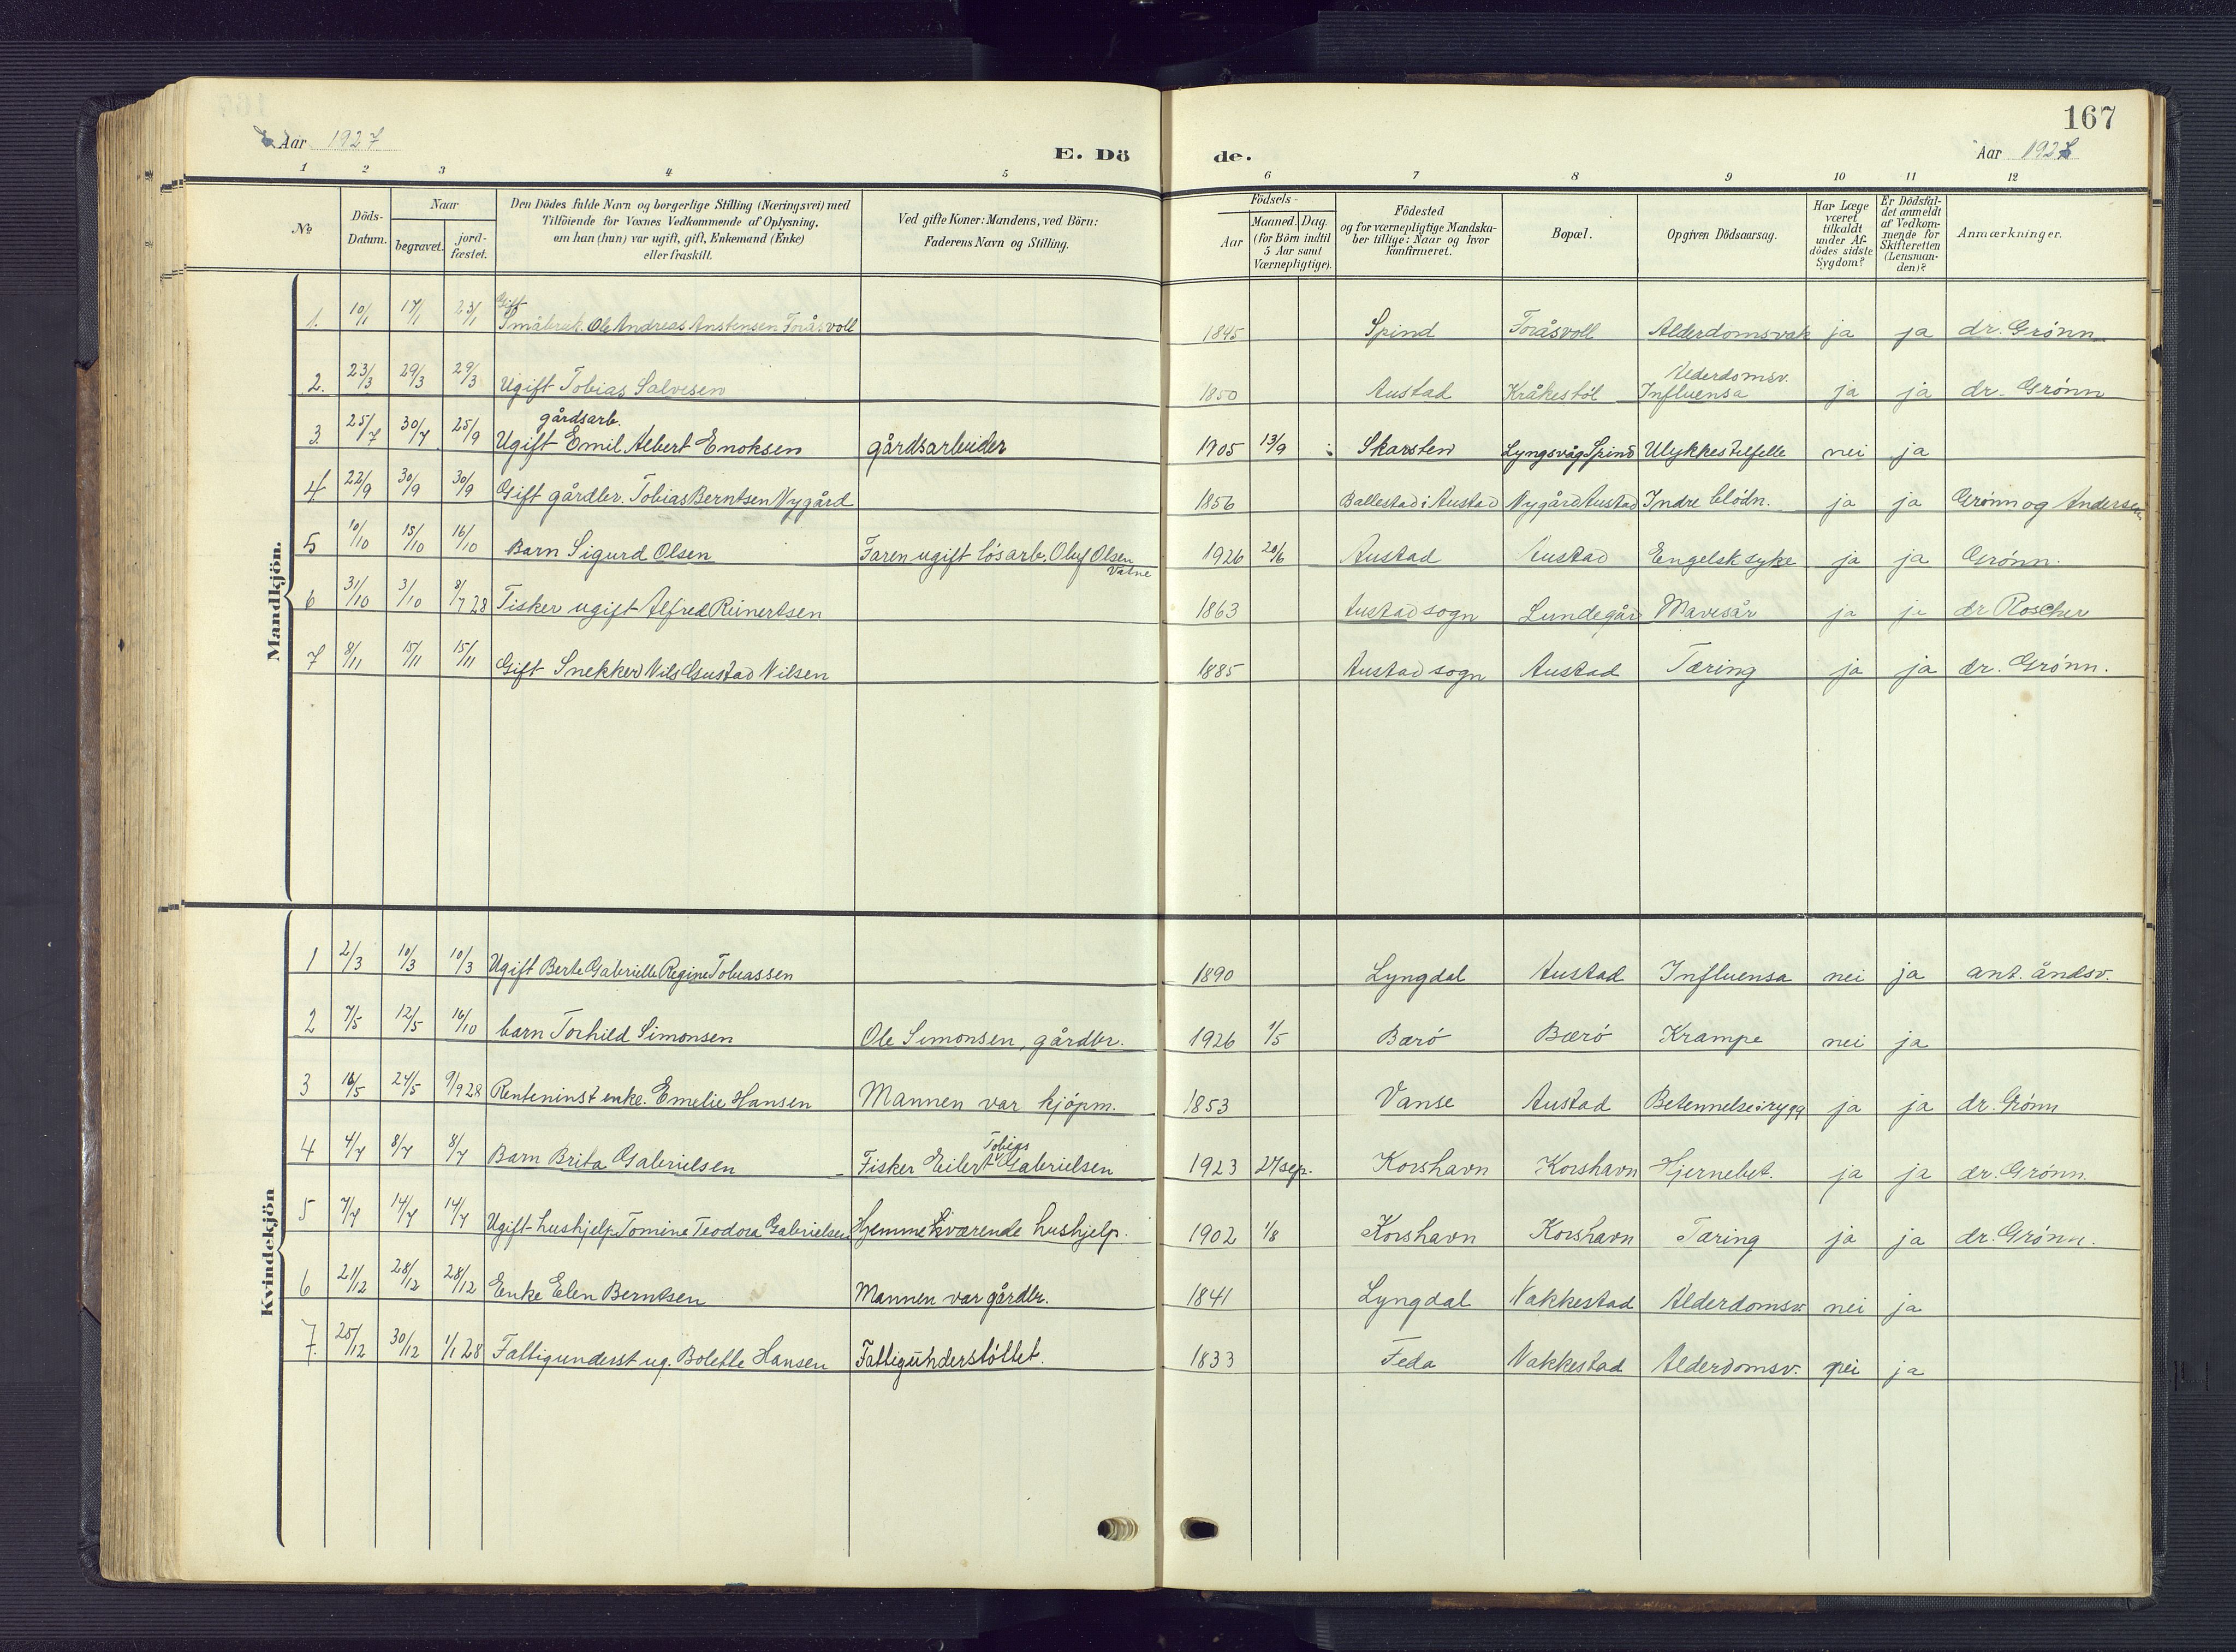 167
Aar 1927
E. Dö
de.
Aar 1927
1 2 3 4 5 6 7 8 9 10 11 12
No
Döds-Datum.
Naar
begravet.
jord-fæstet.
Den Dödes fulde Navn og borgerlige Stilling (Næringsvei) med
Tilföiende for Voxnes Vedkommende af Oplysning,
om han (hun) var ugift, gift, Enkemand (Enke)
eller fraskilt.
Ved gifte Koner: Mandens, ved Börn:
Faderens Navn og Stilling.
Födsels-
Aar
Maaned. Dag.
(for Börn indtil
5 Aar samt
Værnepligtige).
Födested
og for værnepligtige Mandska-
ber tillige: Naar og hvor
konfirmeret.
Bopæl.
Opgiven Dödsaarsag.
Har Læge
været
tilkaldt
under Af-
dödes sidste
Sygdom?
Er Dödsfal-
det anmeldt
af Vedkom-
mende for
Skifteretten
(Lensman-
den)?
Anmærkninger.
Mandkjön.
Gift
1. 10/1 17/1 23/1 Småbruk. Ole Andreas Anstensen Foråsvoll 1845 Spind Foråsvoll Alderdomsvak ja ja dr. Grönn
Alderdomsv.
2. 23/3 29/3 29/3 Ugift Tobias Salvesen 1850 Austad Kråkestöl Influensa ja ja dr. Grönn
gårdsarb.
3. 25/7 30/7 25/9 Ugift Emil Albert Enoksen gårdsarbeider 1905 13/9 Skarstein Lyngsvåg Spind Ulykkestilfelle nei ja
4 22/9 30/9 30/9 Gift gårdbr. Tobias Berntsen Nygård 1856 Ballestad i Austad Nygård Austad Indre blödn. ja ja Grönn og Andersen
5 10/10 15/10 16/10 Barn Sigurd Olsen Faren ugift lösarb. Oluf Olsen 1926 20/6 Austad Austad Engelsk syke ja ja Grönn.
Vatne
6 31/10 3/10 8/7 28 Fisker ugift Alfred Reinertsen 1863 Austad sogn Lundegård Mavesår ja ja dr Roscher
7 8/11 15/11 15/11 Gift Snekker Nils Gustav Nilsen 1885 Austad sogn Austad Tæring ja ja dr. Grönn.
Kvindekjön
1 2/3 10/3 10/3 Ugift Berte Gabrielle Regine Tobiassen 1890 Lyngdal Austad Influensa nei ja ant. åndsv.
2 7/5 12/5 16/10 barn Torhild Simonsen Ole Simonsen, gårdbr. 1926 1/5 Bærö Bærö Krampe nei ja
3 16/5 24/5 9/9 28 Renteninst enke. Emelie Hansen Mannen var kjöpm. 1853 Vanse Austad Betennelse i rygg ja ja dr. Grönn
Tobias
4 4/7 8/7 8/7 Barn Brita Gabrielsen Fisker Eilert Gabrielsen 1923 27 sep. Korshavn Korshavn Hjernebet. ja ja dr. Grönn.
5 7/7 14/7 14/7 Ugift hushjelp. Tomine Teodora Gabrielsen Hjemmeværende hushjelp. 1902 1/8 Korshavn Korshavn Tæring ja ja dr. Grönn.
6 21/12 28/12 28/12 Enke Elen Berntsen Mannen var gårdbr. 1841 Lyngdal Vakkestad Alderdomsv nei ja
7. 25/12 30/12 1/1 28 Fattigunderst ug. Bolette Hansen Fattigunderstöttet. 1833 Feda Vakkestad Alderdomsv. nei ja